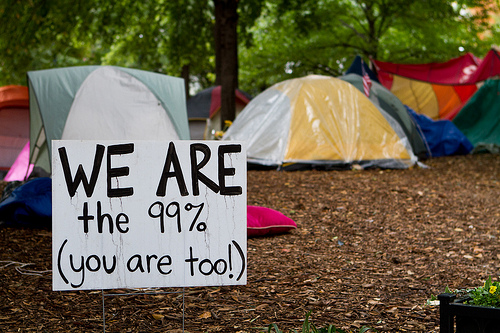 WE ARE
the 99%
(you are too!)